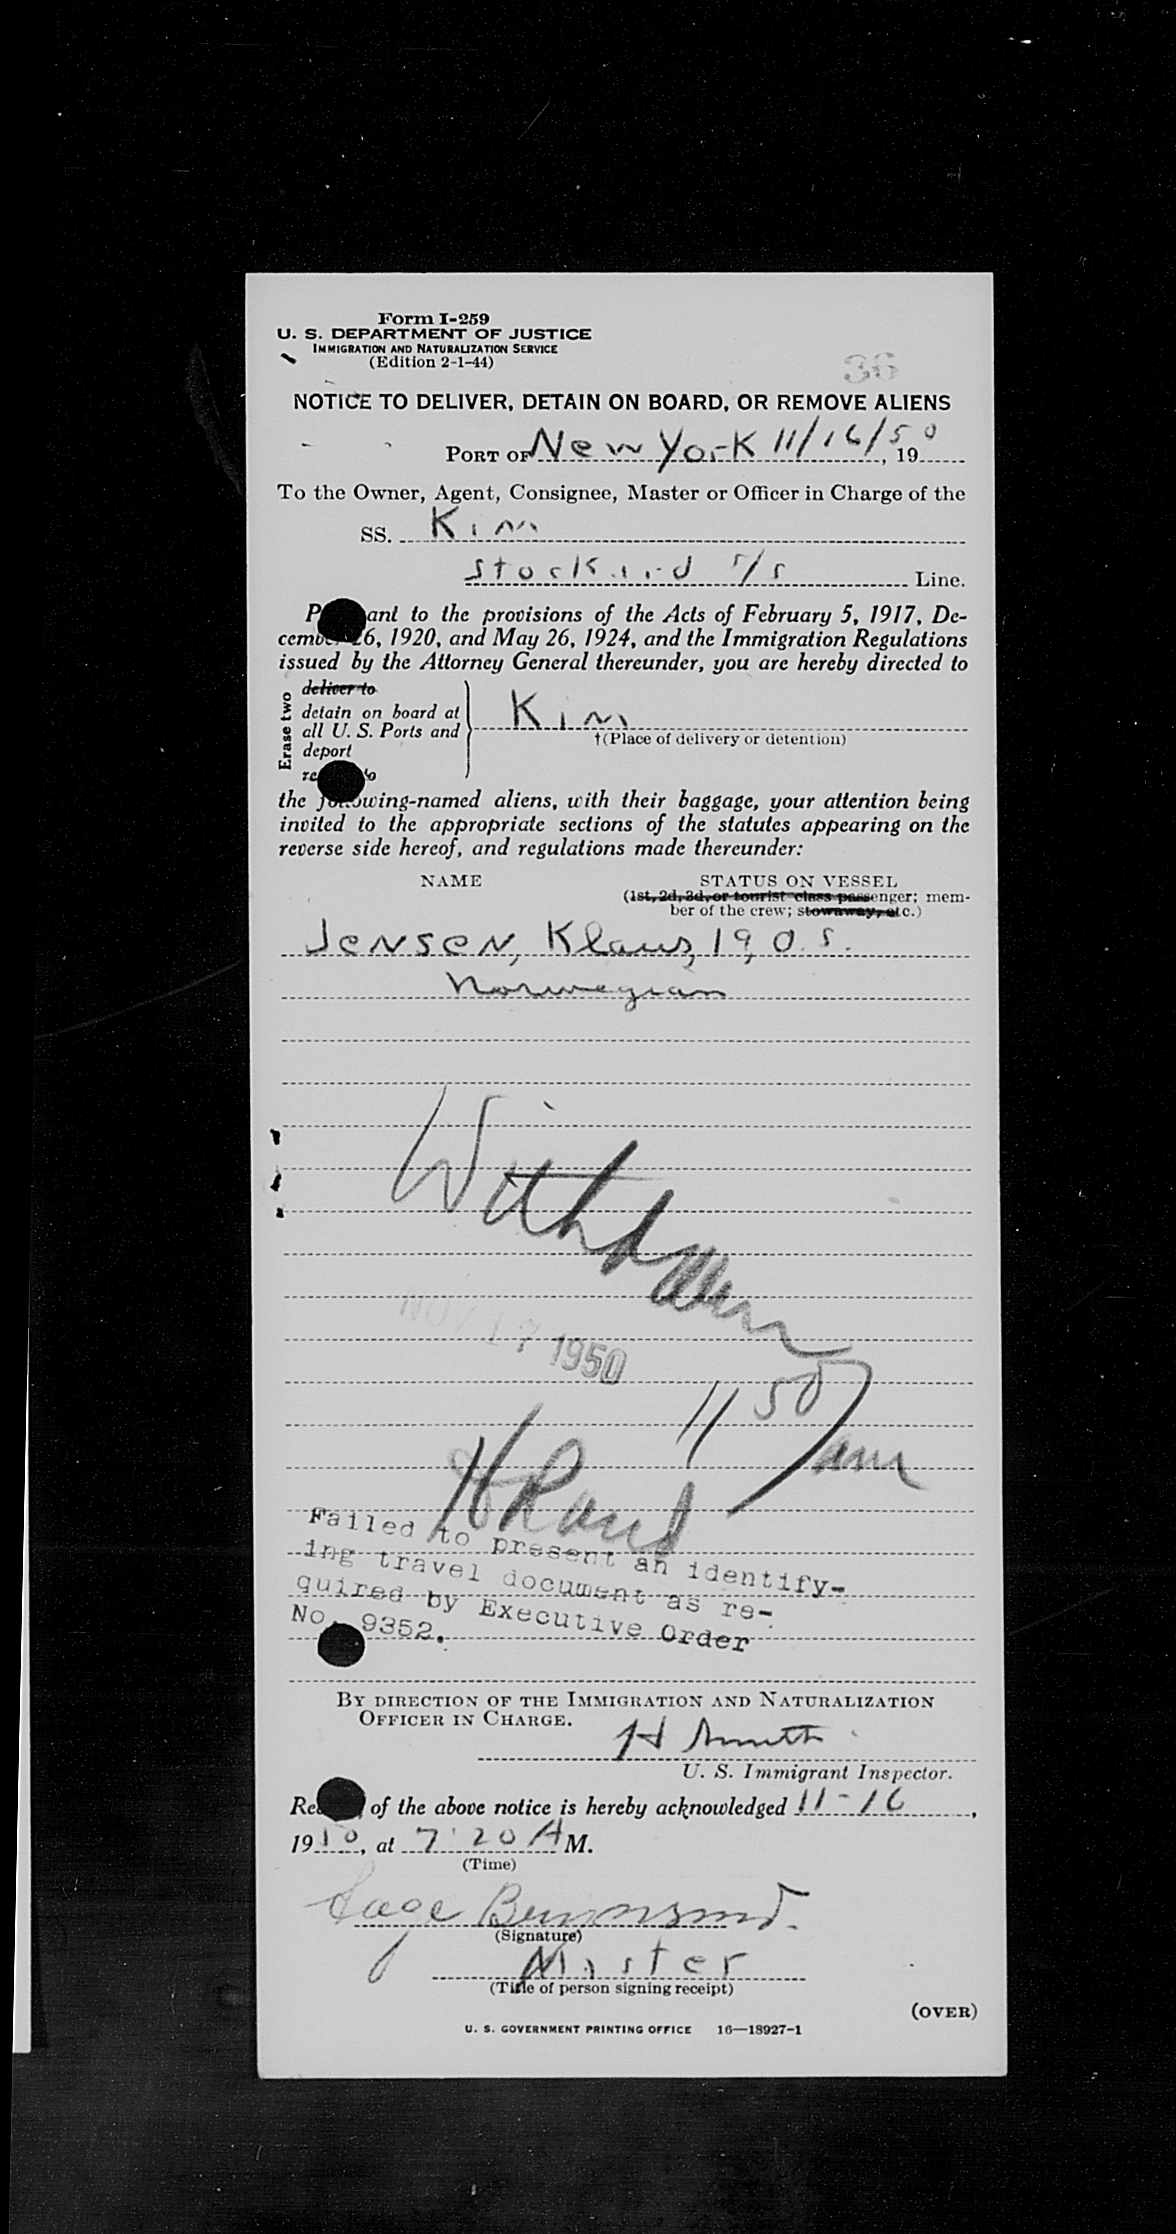 Form I-259
U. S. DEPARTMENT OF JUSTICE
IMMIGRATION AND NATURALIZATION SERVICE
(Edition 2-1-44)
36
NOTICE TO DELIVER, DETAIN ON BOARD, OR REMOVE ALIENS
PORT OF New York 11/16/50, 19
To the Owner, Agent, Consignee, Master or Officer in Charge of the
SS. Kim
s/s Line.
ant to the provisions of the Acts of February 5, 1917, De-
cember 26, 1920, and May 26, 1924, and the Immigration Regulations
issued by the Attorney General thereunder, you are hereby directed to
Erase two
deliver to
detain on board at
all U. S. Ports and
deport
to
Kim
†(Place of delivery or detention)
the following-named aliens, with their baggage, your attention being
invited to the appropriate sections of the statutes appearing on the
reverse side hereof, and regulations made thereunder:
NAME STATUS ON VESSEL
(1st, 2d, 3d, or tourist class passenger; mem-
ber of the crew; stowaway, etc.)
Jensen, Klaus, 19, O.S.
Norwegian
Withdrawn
NOV 17 1950
11 50 am
H Rand
Failed to present an identify-
ing travel document as re-
quired by Executive Order
No. 9352.
BY DIRECTION OF THE IMMIGRATION AND NATURALIZATION
OFFICER IN CHARGE.
H Smith
U. S. Immigrant Inspector.
of the above notice is hereby acknowledged 11-16,
1950, at 7:20 A M.
(Time)
(Signature)
Master
(Title of person signing receipt)
(OVER)
U. S. GOVERNMENT PRINTING OFFICE 16—18927-1